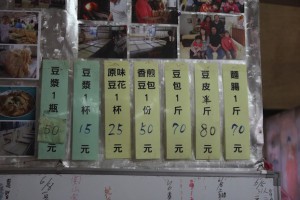 豆漿1瓶50元
豆漿1杯15元
原味豆花1杯25元
香煎豆包1份50元
豆包1斤70元
豆皮半斤80元
麵腸1斤70元